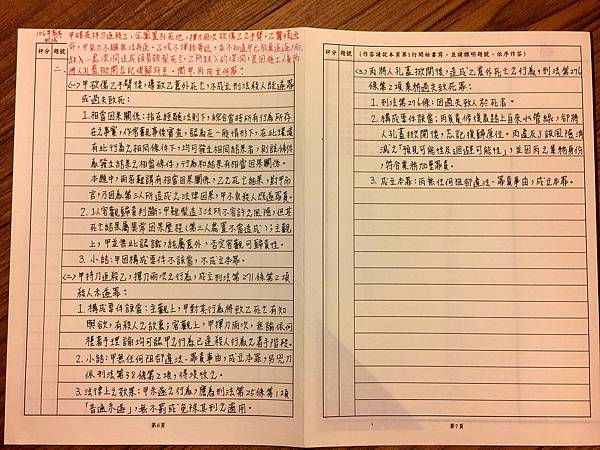 106年高考
刑法
甲時夜持刀追殺乙,
評分 題號
二、
(一)甲欲傷乙手臂後,導致乙意外死亡,不成立刑法殺人既遂罪
或過失致死:
1.相當因果關係:指在經驗法則下,綜合當時所有行為所存
在之事實,作客觀事後審查,認為在一般情形下,在此環境
有此行為之相同條件下,均可發生相同結果者,則該條件
為發生結果之相當條件,行為和結果有相當因果關係。
本題中,因客難謂有相當因果關係,乙之死亡結果,對甲而
言,乃因為第三人所造成之法律因果,甲不負殺人既遂罪責。
2.以客觀歸責判斷:甲雖製造了法所不容許之風險,但其
死亡結果屬異常因果歷程(第三人處置不當造成);主觀
上,甲並無此認識,結屬意外,否定客觀可歸責性。
3.小結:甲因構成要件不該當,不成立本罪。
(二)甲持刀追殺乙,揮刀兩次之行為,成立刑法第271條第2項
殺人未遂罪:
1.構成要件該當:主觀上,甲對其行為將致乙死亡有知
與欲,有殺人之故意;客觀上,甲揮刀兩次,無論依何
種著手理論均可認甲之行為已達殺人行為之著手階段。
2.小結:甲無任何阻卻違法、罪責事由,成立本罪,另兇刀
依刑法第38條第2項,得沒收之。
3.法律上之效果:甲未遂之行為,應為刑法第25條第1項
「普通未遂」,無不罰或免除其刑之適用。
第6頁
評分 題號 (作答請從本頁第1行開始書寫,並請標明題號,依序作答)
(三)丙將人孔蓋掀開後,造成乙意外死亡之行為,刑法第276
條第2項業務過失致死罪:
1.刑法第276條:因過失致人於死者。
2.構成要件該當:丙負責修復路上自來水管線,卻將
人孔蓋掀開後,忘記復歸原位。丙違反了該風險消
滅之「預見可能性及迴避可能性」,並因丙之業務身份,
符合業務加重罪責。
3.成立本罪:丙無任何阻卻違法、罪責事由,成立本罪。
第7頁